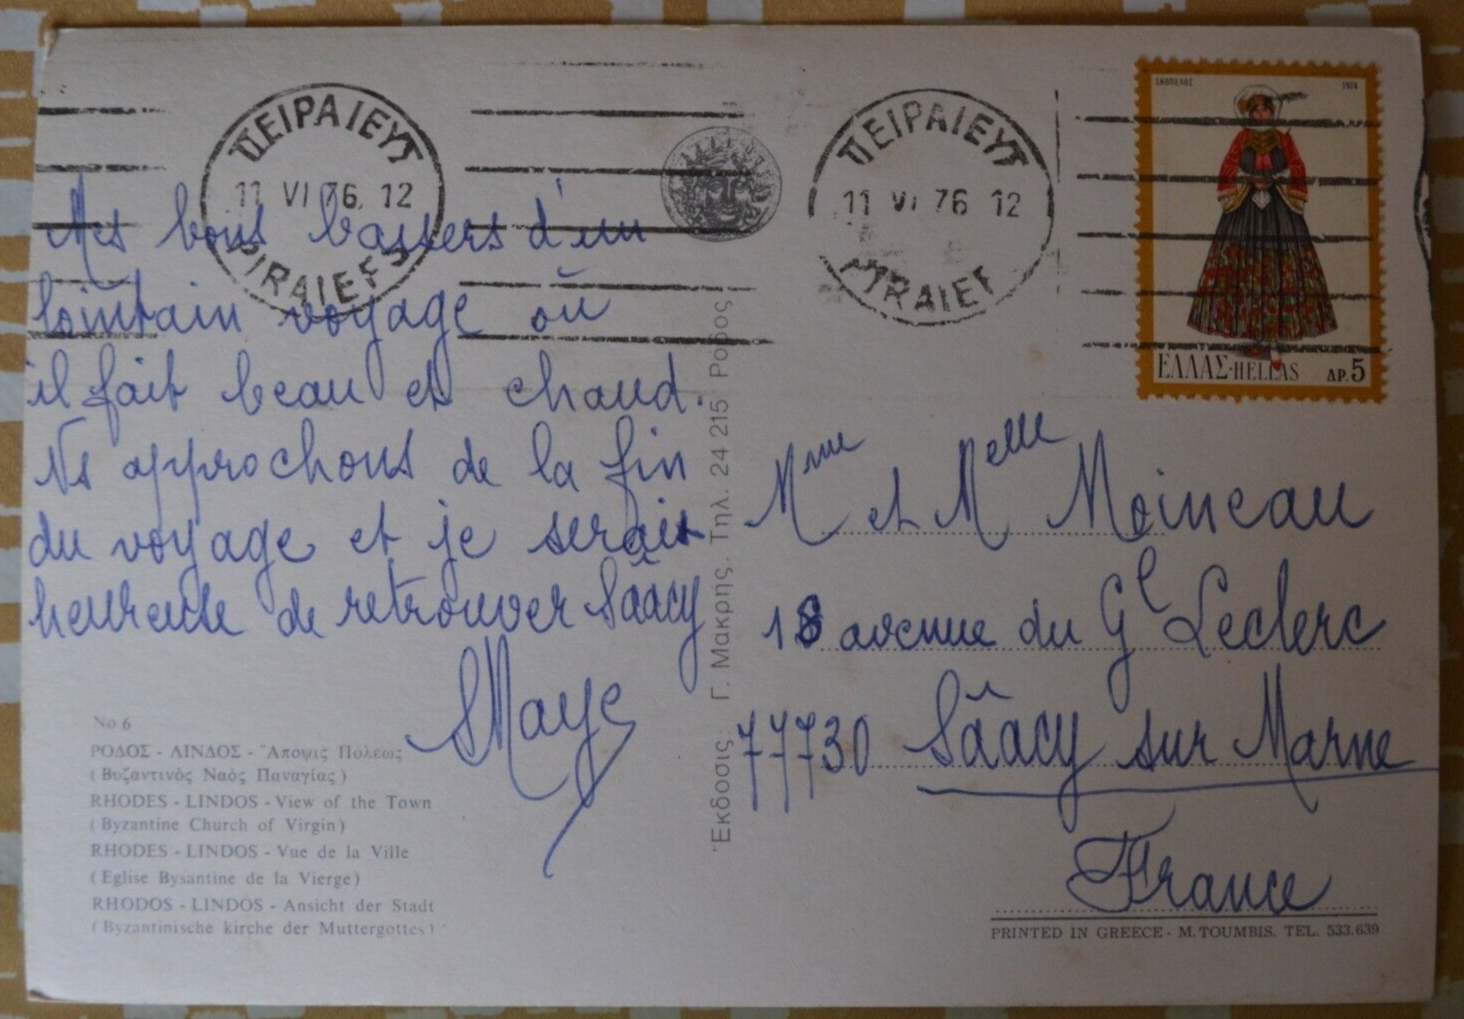 ΠΕΙΡΑΙΕΥΣ
11 VI 76. 12
PIRAIEFS
ΠΕΙΡΑΙΕΥΣ
11 VI 76 12
PIRAIEF
ΣΚΟΠΕΛΟΣ 1974
ΕΛΛΑΣ-HELLAS ΔΡ.5
Mes bons baisers d'un
lointain voyage où
il fait beau et chaud.
Ns approchons de la fin
du voyage et je serais
heureuse de retrouver Sâacy
Maye
Mme et Melle Moineau
18 avenue du Gl Leclerc
77730 Sâacy sur Marne
France
Ἔκδοσις: Γ. Μακρης. Τηλ. 24 215 Ροδος
No 6
ΡΟΔΟΣ - ΛΙΝΔΟΣ - Ἄποψις Πόλεως
(Βυζαντινὸς Ναὸς Παναγίας)
RHODES - LINDOS - View of the Town
(Byzantine Church of Virgin)
RHODES - LINDOS - Vue de la Ville
(Eglise Bysantine de la Vierge)
RHODOS - LINDOS - Ansicht der Stadt
(Byzantinische kirche der Muttergottes)
PRINTED IN GREECE - M. TOUMBIS. TEL. 533.639